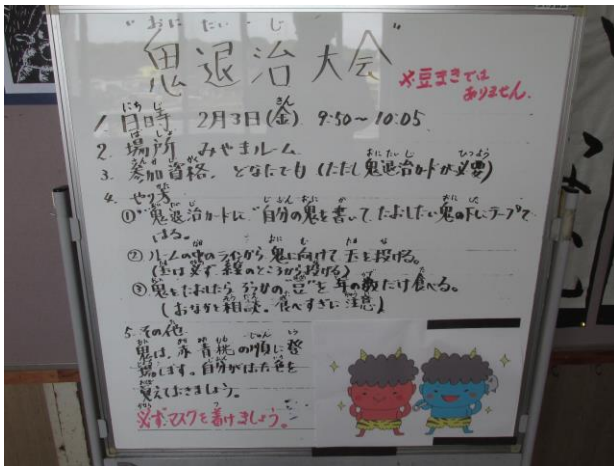 "鬼退治大会"
※豆まきでは
ありません。
1. 日時 2月3日(金) 9:50~10:05
2. 場所 みやまルーム
3. 参加資格. どなたでも (ただし鬼退治カードが必要)
4. やり方
① "鬼退治カードに"自分の鬼を書いて、たおしたい鬼の下にテープで
はる。
② ルームの中のラインから鬼に向けて玉を投げる。
(玉は必ず 線のところから投げる)
③ 鬼をたおしたら "豆"を年の数だけ食べる。
(おなかと相談。食べすぎに注意)
5. その他
鬼は、赤 青 桃 の順に登
場します。自分がはった色を
覚えておきましょう。
必ずマスクを着けましょう。